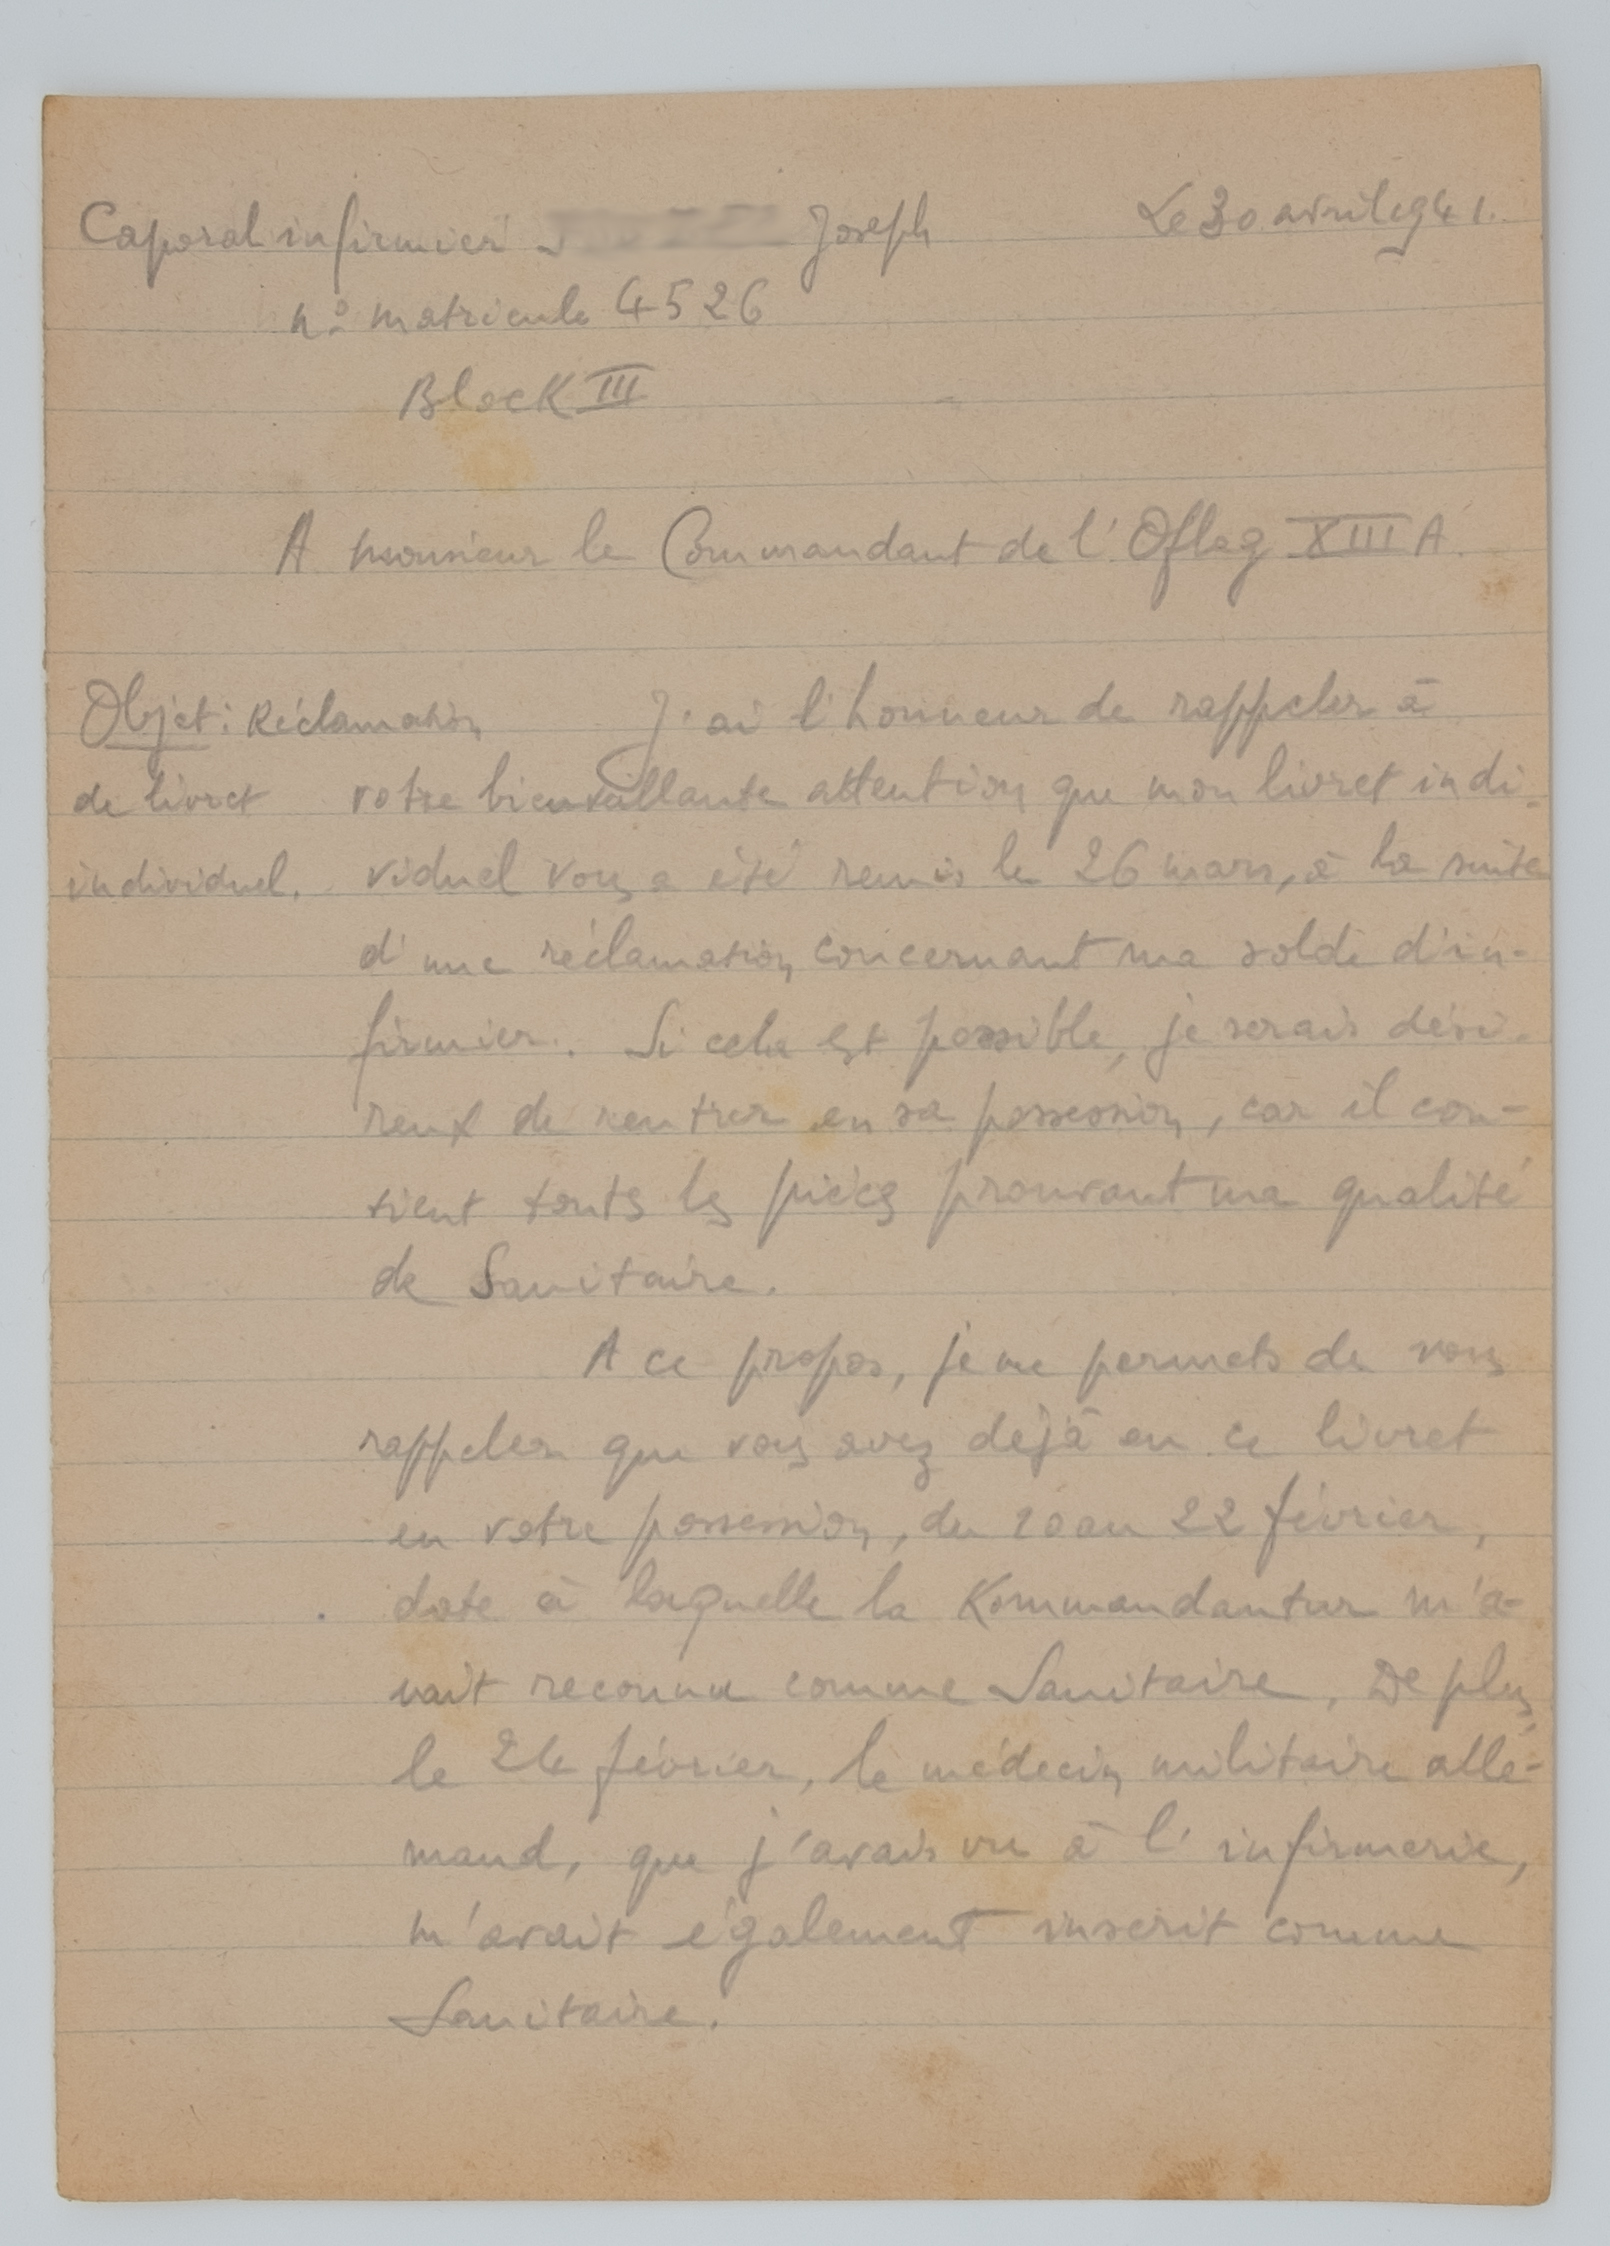 Caporal infirmier Joseph Le 30 avril 1941.
n° matricule 4526
Block III
A monsieur le Commandant de l'Oflag XIII A.
Objet : Réclamation J'ai l'honneur de rappeler à
de livret votre bienveillante attention que mon livret indi-
individuel. viduel vous a été remis le 26 mars, à la suite
d'une réclamation concernant ma solde d'in-
firmier. Si cela est possible, je serais dési-
reux de rentrer en sa possession, car il con-
tient touts les pièces prouvant ma qualité
de Sanitaire.
A ce propos, je me permets de vous
rappeler que vous avez déjà eu ce livret
en votre possession, du au 22 février,
date à laquelle la Kommandantur m'a-
vait reconnu comme Sanitaire. De plus,
le février, le médecin militaire alle-
mand, que j'avais vu à l'infirmerie,
m'avait également inscrit comme
Sanitaire.